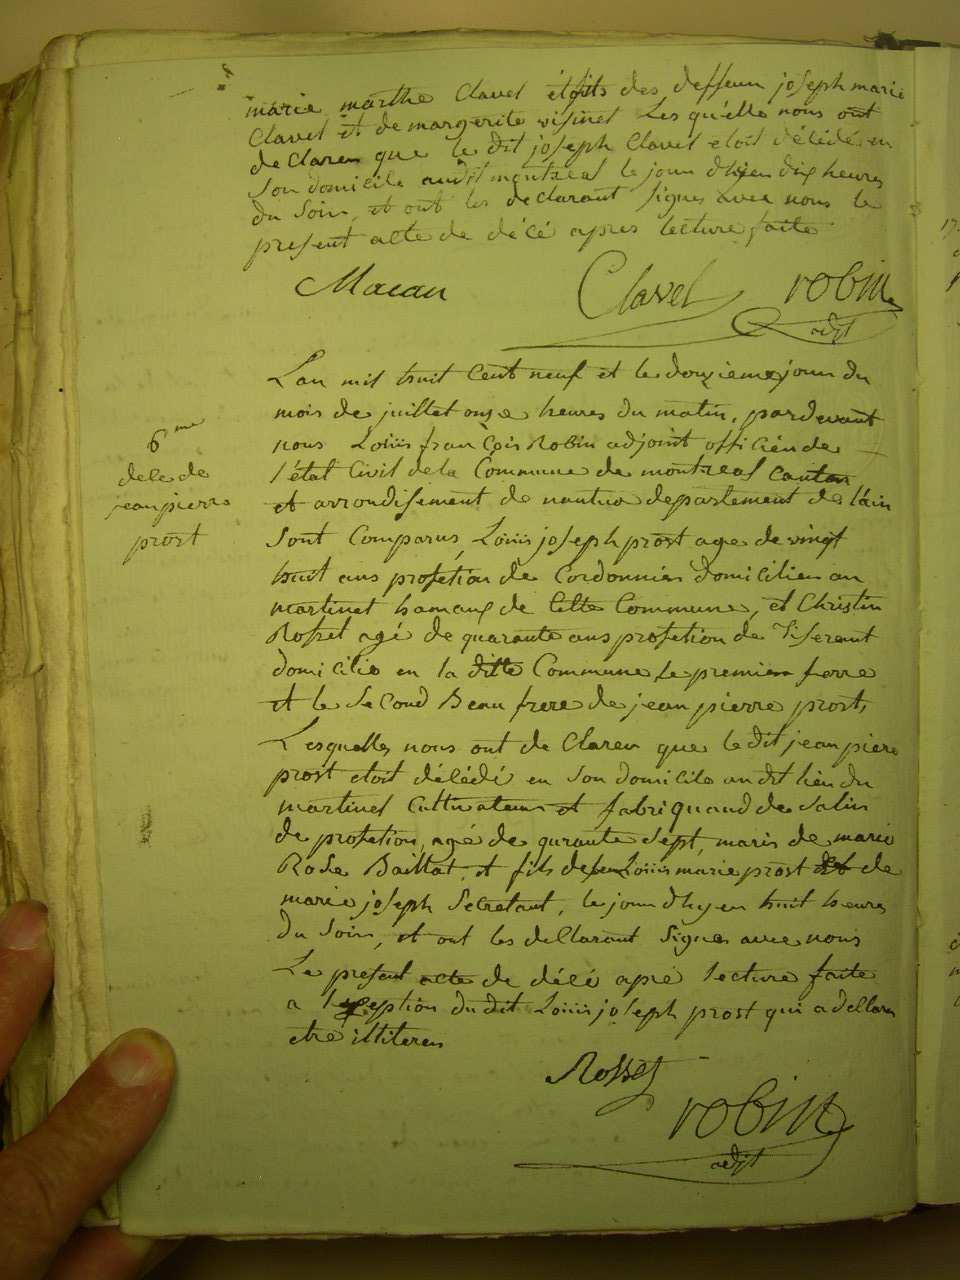 marie marthe Clavel et fils des deffeun joseph marie
Clavel et de margerite visinet Les quelle nous ont
de Claren que le dit joseph Clavel etoit décédé en
son domicile audit montreal le jour dhyen dix heures
du soir, et ont les declarant signes avec nous le
present acte de décé apres lecture faite
Macau Clavel robin
adjt
L'an mil huit Cent neuf et le douzieme jour du
mois de juillet onze heures du matin, pardevant
nous Louis francois Robin adjoint officien de
l'état Civil de la Commune de montreal canton
et arrondisement de nantua departement de lain
Sont Comparus, Louis joseph prost age de vingt
huit ans profetion de Cordonnier domicilien au
martinet hamaux de cette Commune, et Christin
Rosset agé de quarante ans profetion de tiserant
domicilie en la ditte Commune Le premier ferre
et le Second Beau frere de jean pierre prost,
Lesquelles nous ont de Claren que le dit jean piere
prost etoit décédé en son domicile au dt lieu du
martinet Cultivateur et fabriquand de Salin
de profetion, agé de qurante sept, maris de marie
Rose Baillat, et fils de feu Louis marie prost et de
marie joseph Secretant, le jour dhyen huit heures
du Soir, et ont les dellarant Signes avec nous
Le present acte de décé apré lecture faite
a l'exeption du dit Louis joseph prost qui a dellaren
etre illiteren
Rosset
robin
adjt
6me
dece de
jean pierre
prost